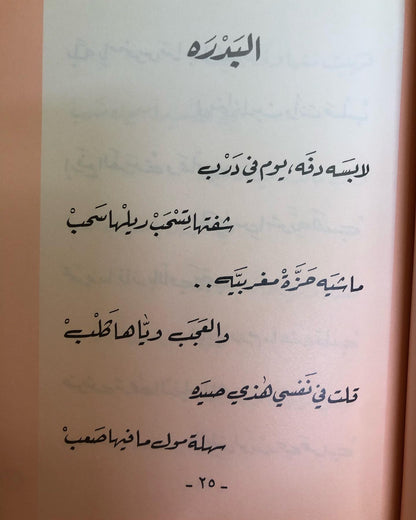 البَدْرَه
لابسَه دفّه، يوم في دَرْب
شفتها تِسْحَبْ ريلها سَحَبْ
ماشيَه حَزَّةْ مغربيَّه ..
والعَجَبَ ويّاها كَلْبْ
قلت في نَفْسي هٰذي صيدَه
سهلة مول ما فيها صَعبْ
- ٢٥ -